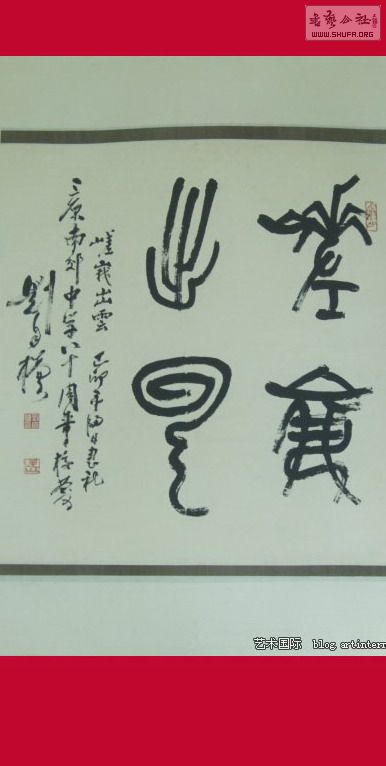 书艺公社
WWW.SHUFA.ORG
嵯峨
出雲
嵯峨出雲 己卯年
三原南郊中学八十周年校慶
劉自櫝
艺术国际 blog.artintern